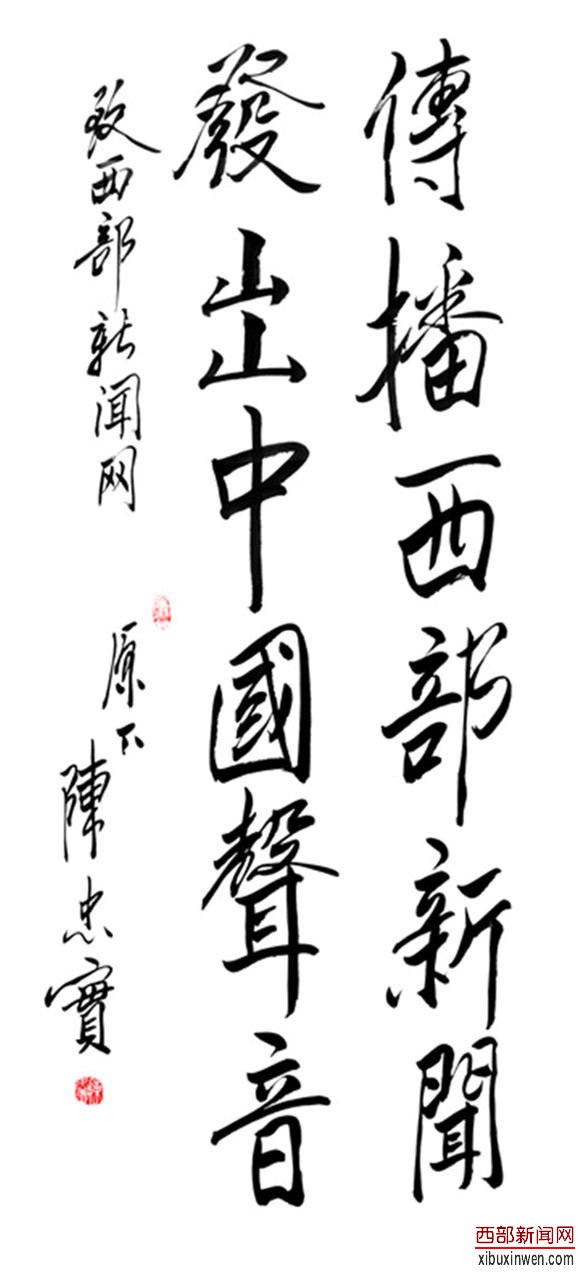 傳播西部新聞
發出中國聲音
致西部新闻网
原下
陳忠實
西部新闻网
xibuxinwen.com